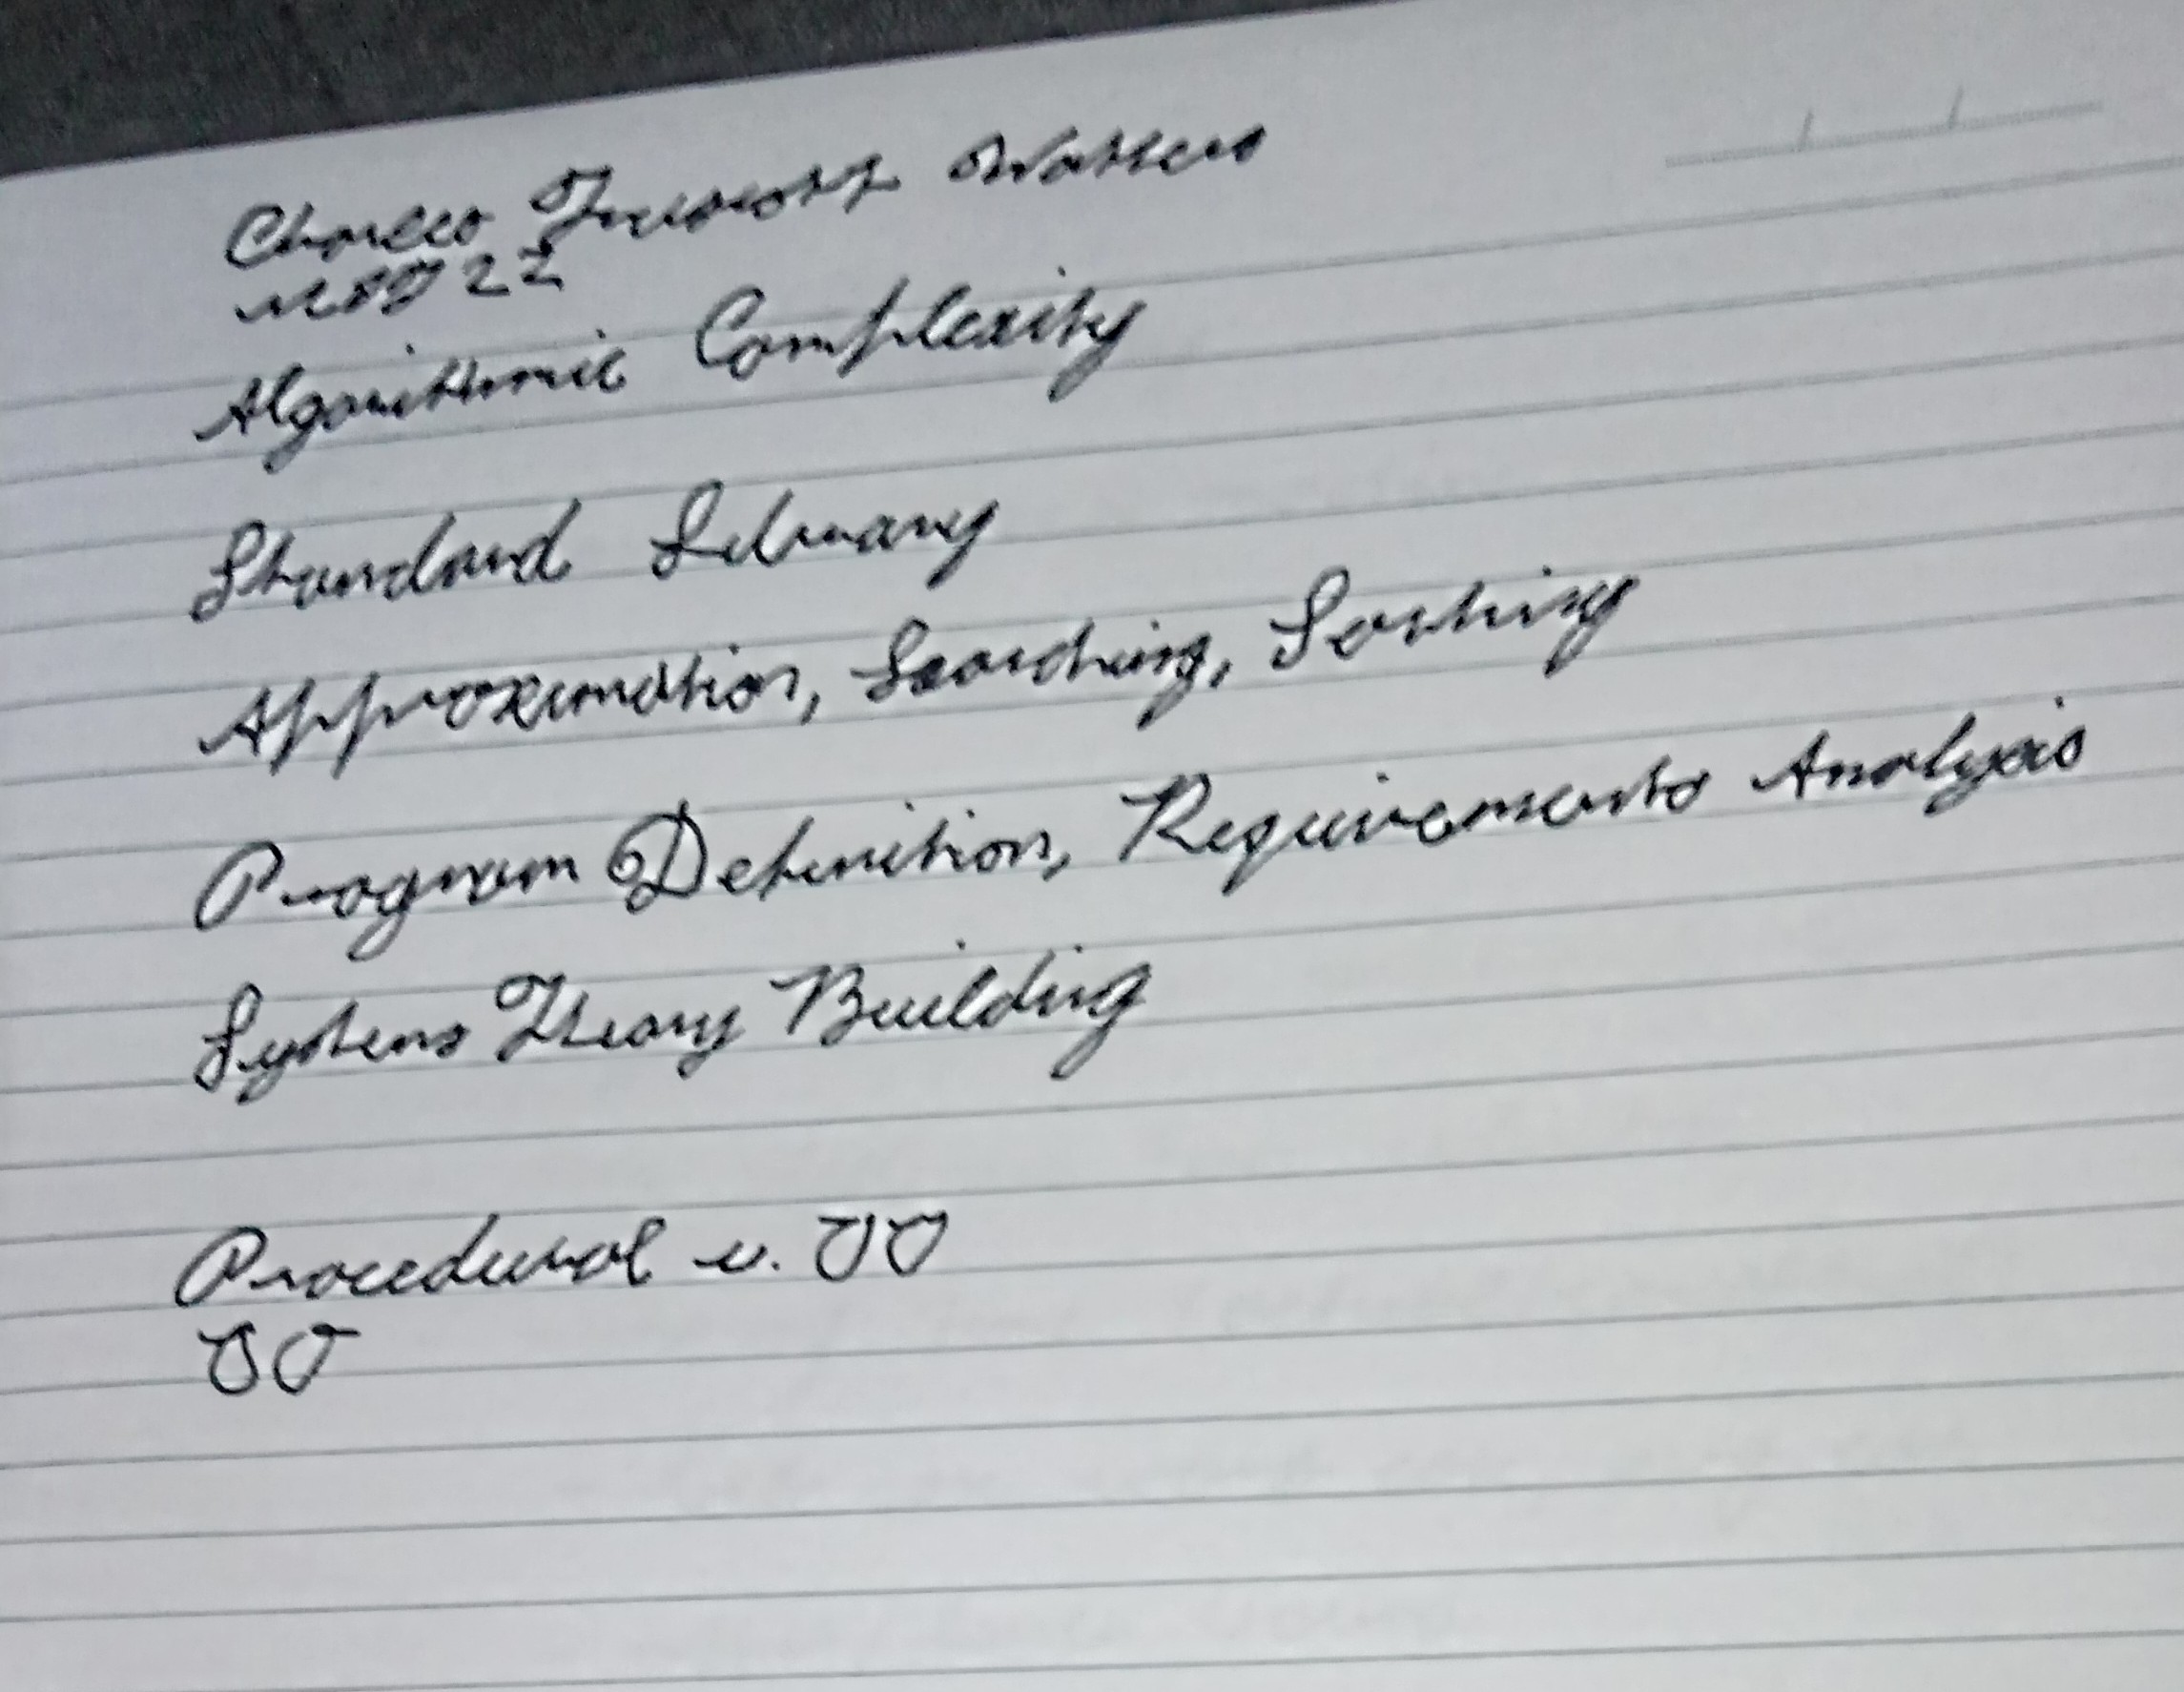 Charles Truscott Watters
22
Algorithmic Complexity
Standard Library
Approximation, Searching, Sorting
Program Definition, Requirements Analysis
Systems Theory Building
Procedural v. OO
OO